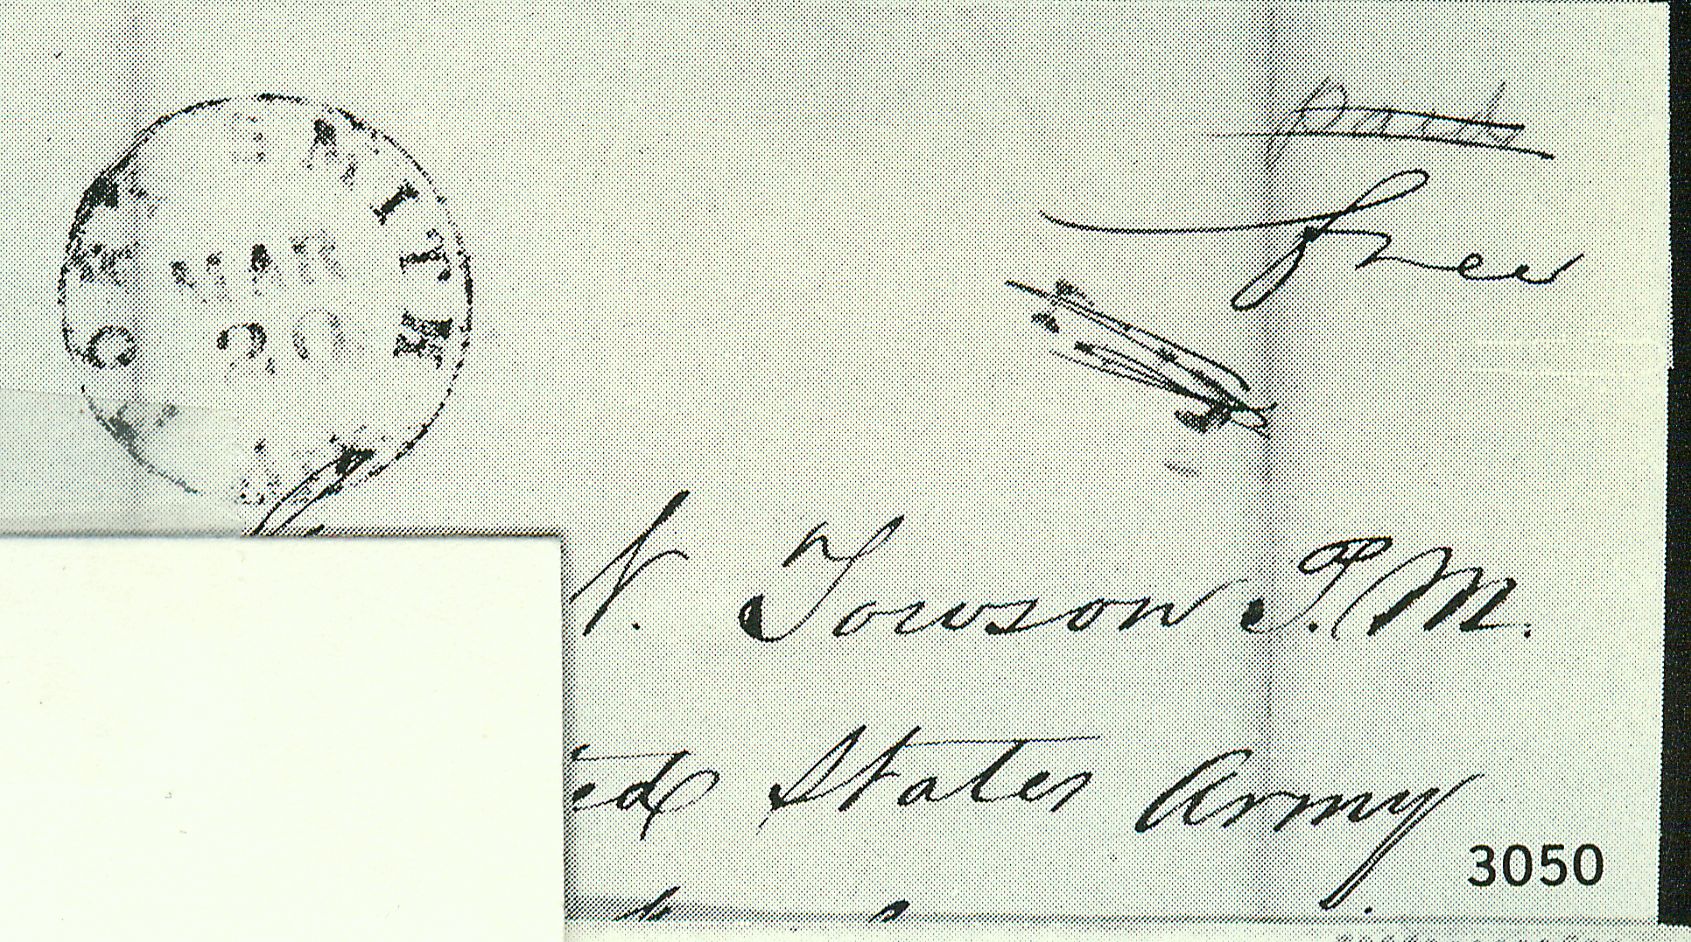 SMITH
MAR
20
paid
free
N. Towson P.M.
ed States Army
3050